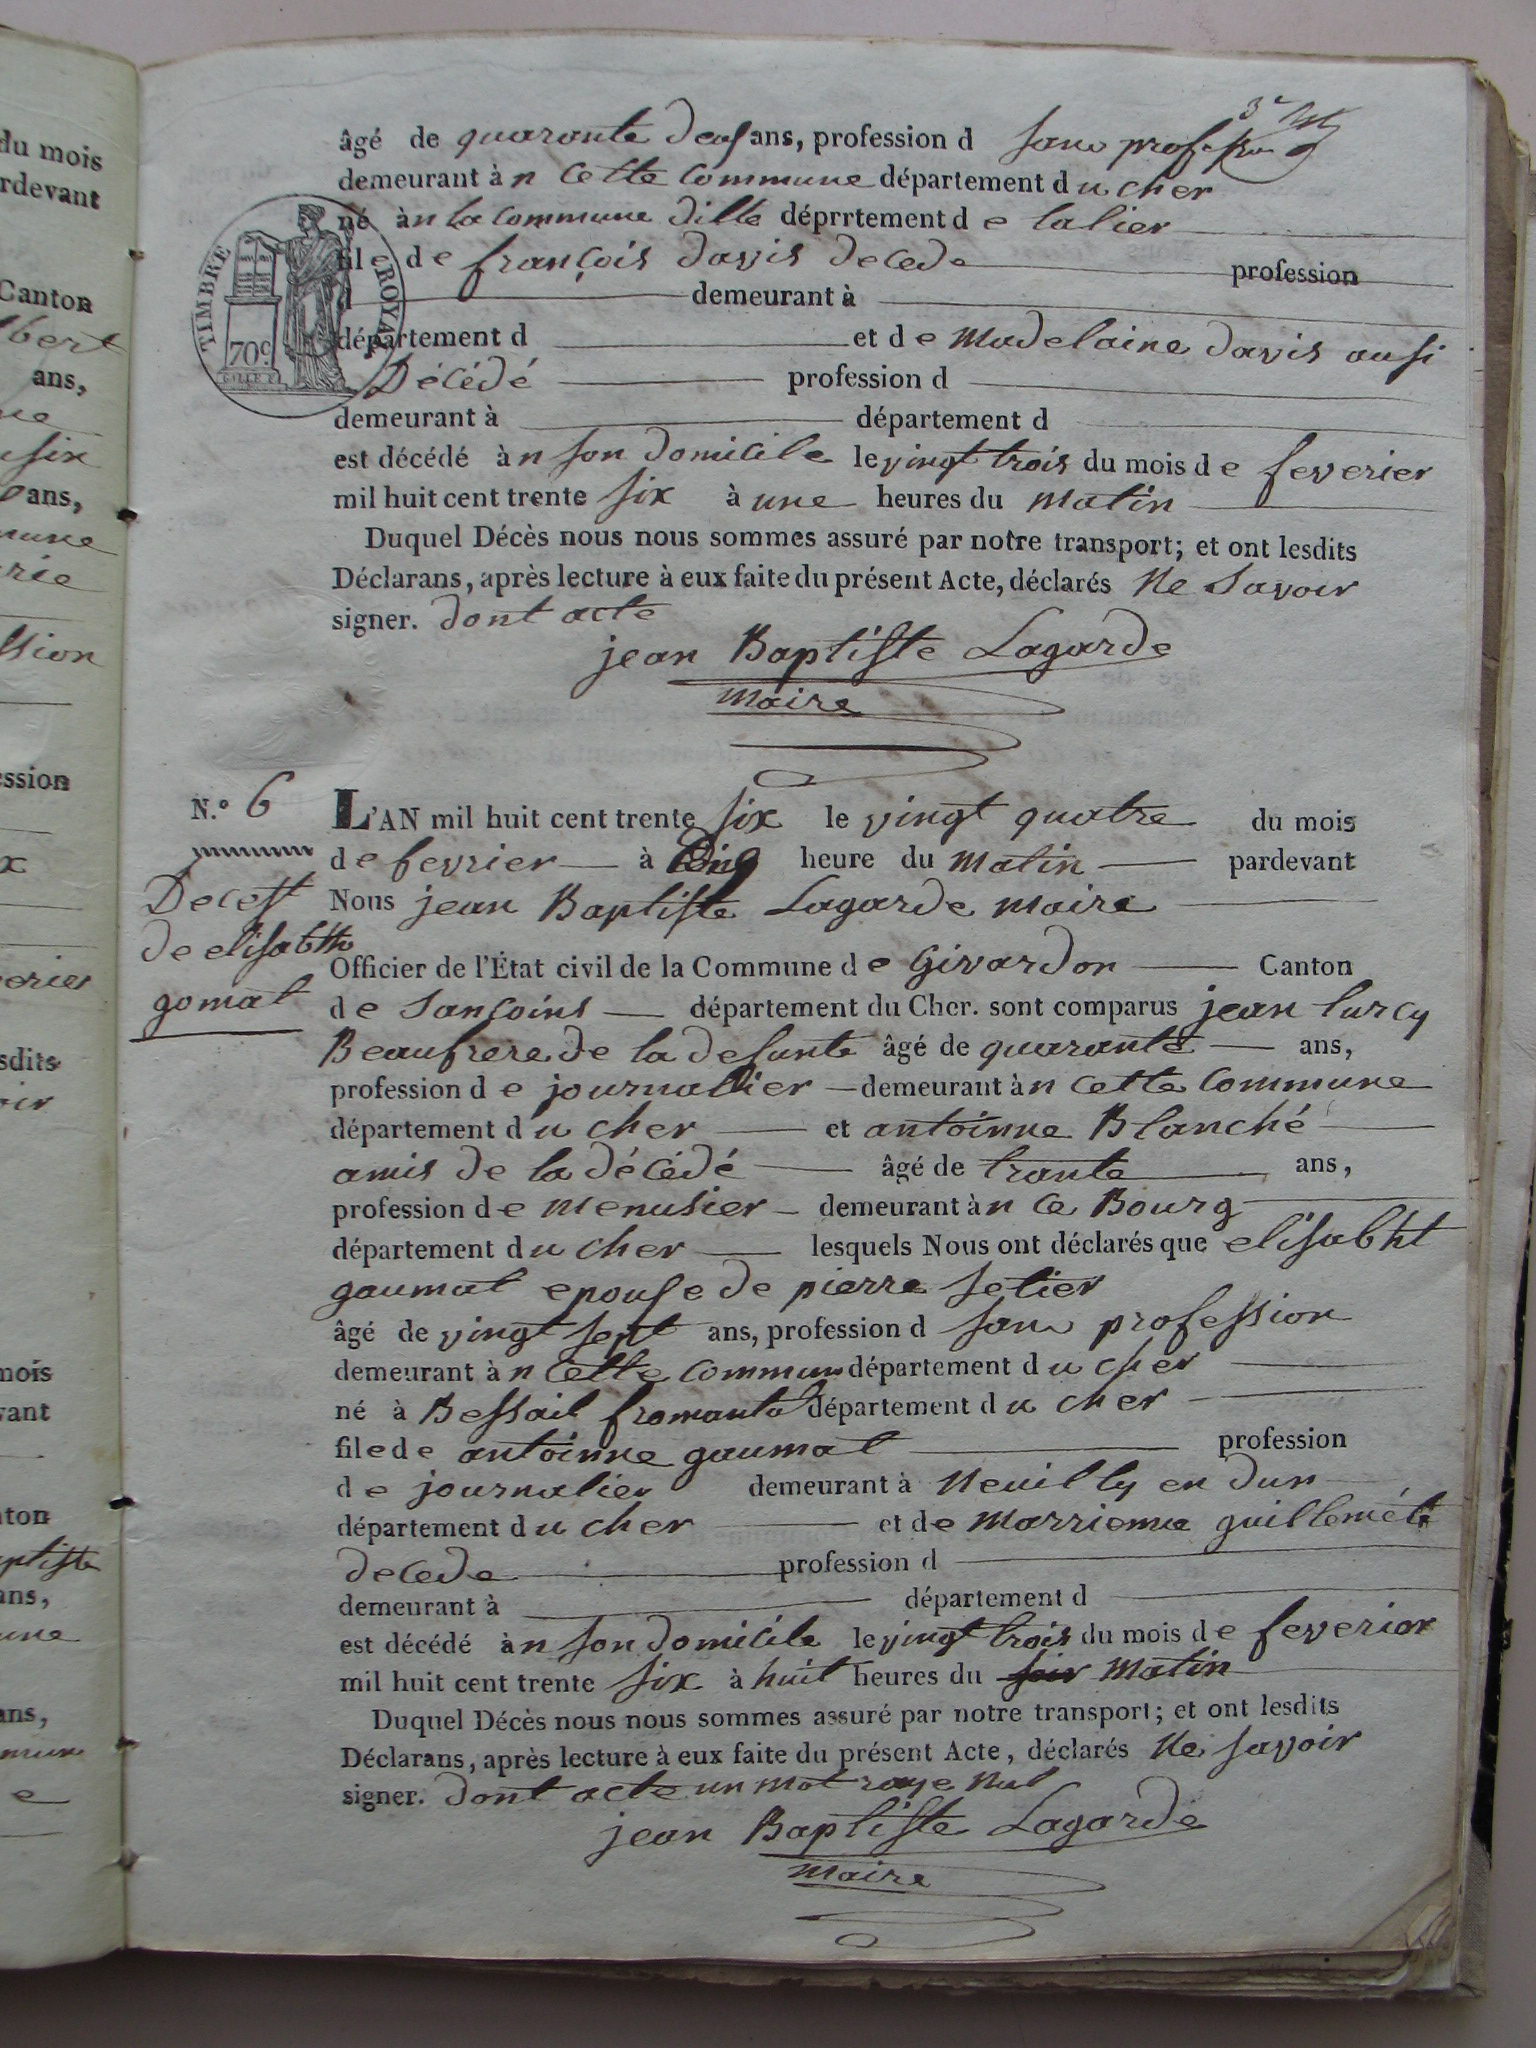 du mois
rdevant
Canton
lbert
ans,
ne
six
ans,
mune
rie
ssion
ession
x
eries
sdits
oir
mois
vant
nton
aptiste
ans,
une
ans,
mune
e
3e
âgé de quarante deux ans, profession d sans profession
demeurant àn cette commune département du cher
né àn la commune dille déprrtement de lalier
TIMBRE ROYAL
70c
file de françois davis decede profession
d demeurant à
département d et de Madelaine davis ausi
Décédé profession d
demeurant à département d
est décédé àn son domicile le vingt trois du mois de feverier
mil huit cent trente six à une heures du matin
Duquel Décès nous nous sommes assuré par notre transport; et ont lesdits
Déclarans, après lecture à eux faite du présent Acte, déclarés Ne Savoir
signer. dont acte
jean Baptiste Lagarde
maire
N.o 6
Decest
de elisabth
gomat
L'AN mil huit cent trente six le vingt quatre du mois
de fevrier à Cinq heure du matin pardevant
Nous jean Baptiste Lagarde maire
Officier de l'État civil de la Commune de Givardon Canton
de Sancoins département du Cher. sont comparus jean turcy
Beaufrere de la defunte âgé de quarante ans,
profession de journalier demeurant àn cette Commune
département du cher et antoinne Blanché
amis de la décédé âgé de trante ans,
profession de Menusier demeurant àn ce Bourg
département du cher lesquels Nous ont déclarés que elisabht
gaumat epouse de pierre Setier
âgé de vingt sept ans, profession d sans profession
demeurant àn cette commun département du cher
né à Bessail fromantal département du cher
file de antoinne gaumat profession
de journalier demeurant à Neuilly en dun
département du cher et de Marrienne guilleméte
decede profession d
demeurant à département d
est décédé àn son domicile le vingt trois du mois de feverier
mil huit cent trente six à huit heures du soir matin
Duquel Décès nous nous sommes assuré par notre transport; et ont lesdits
Déclarans, après lecture à eux faite du présent Acte, déclarés Ne savoir
signer. dont acte un mot raye nul
jean Baptiste Lagarde
maire